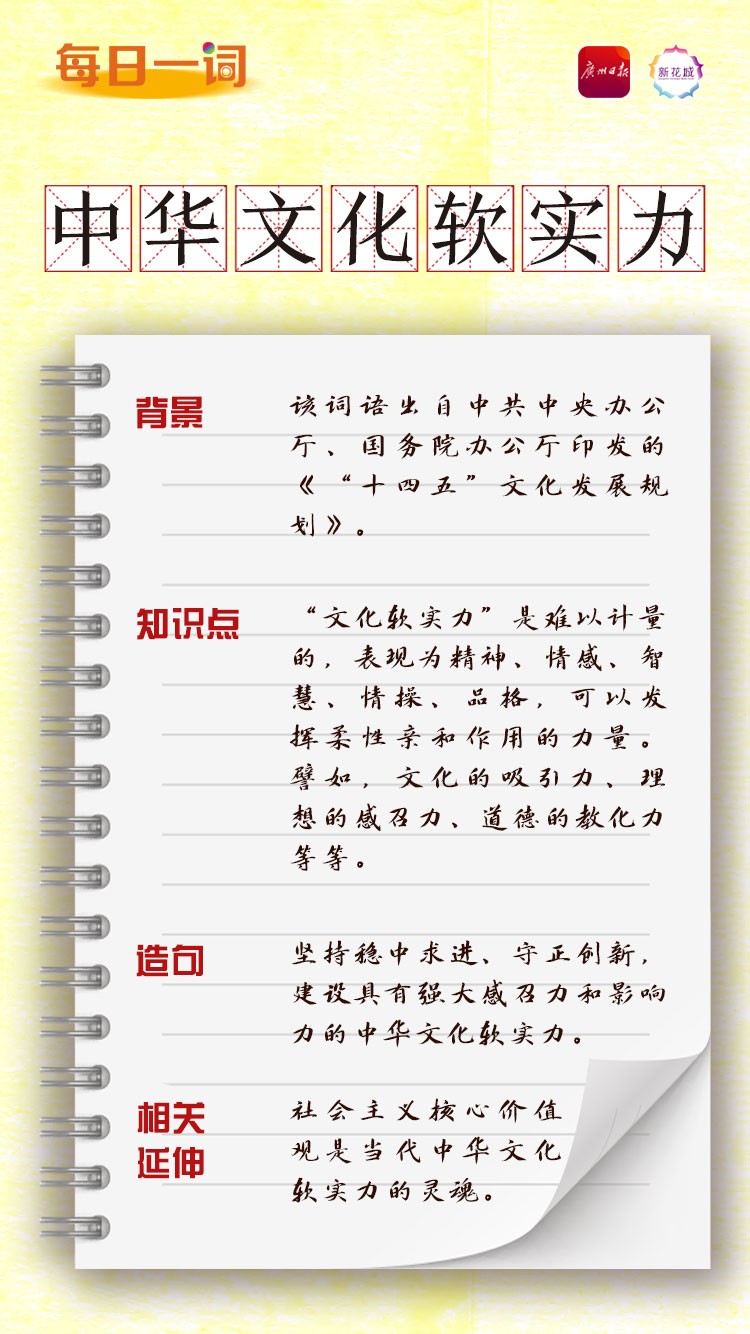 每日一词
广州日报
新花城
中华文化软实力
背景
该词语出自中共中央办公
厅、国务院办公厅印发的
《“十四五”文化发展规
划》。
知识点
“文化软实力”是难以计量
的，表现为精神、情感、智
慧、情操、品格，可以发
挥柔性亲和作用的力量。
譬如，文化的吸引力、理
想的感召力、道德的教化力
等等。
造句
坚持稳中求进、守正创新，
建设具有强大感召力和影响
力的中华文化软实力。
相关
延伸
社会主义核心价值
观是当代中华文化
软实力的灵魂。